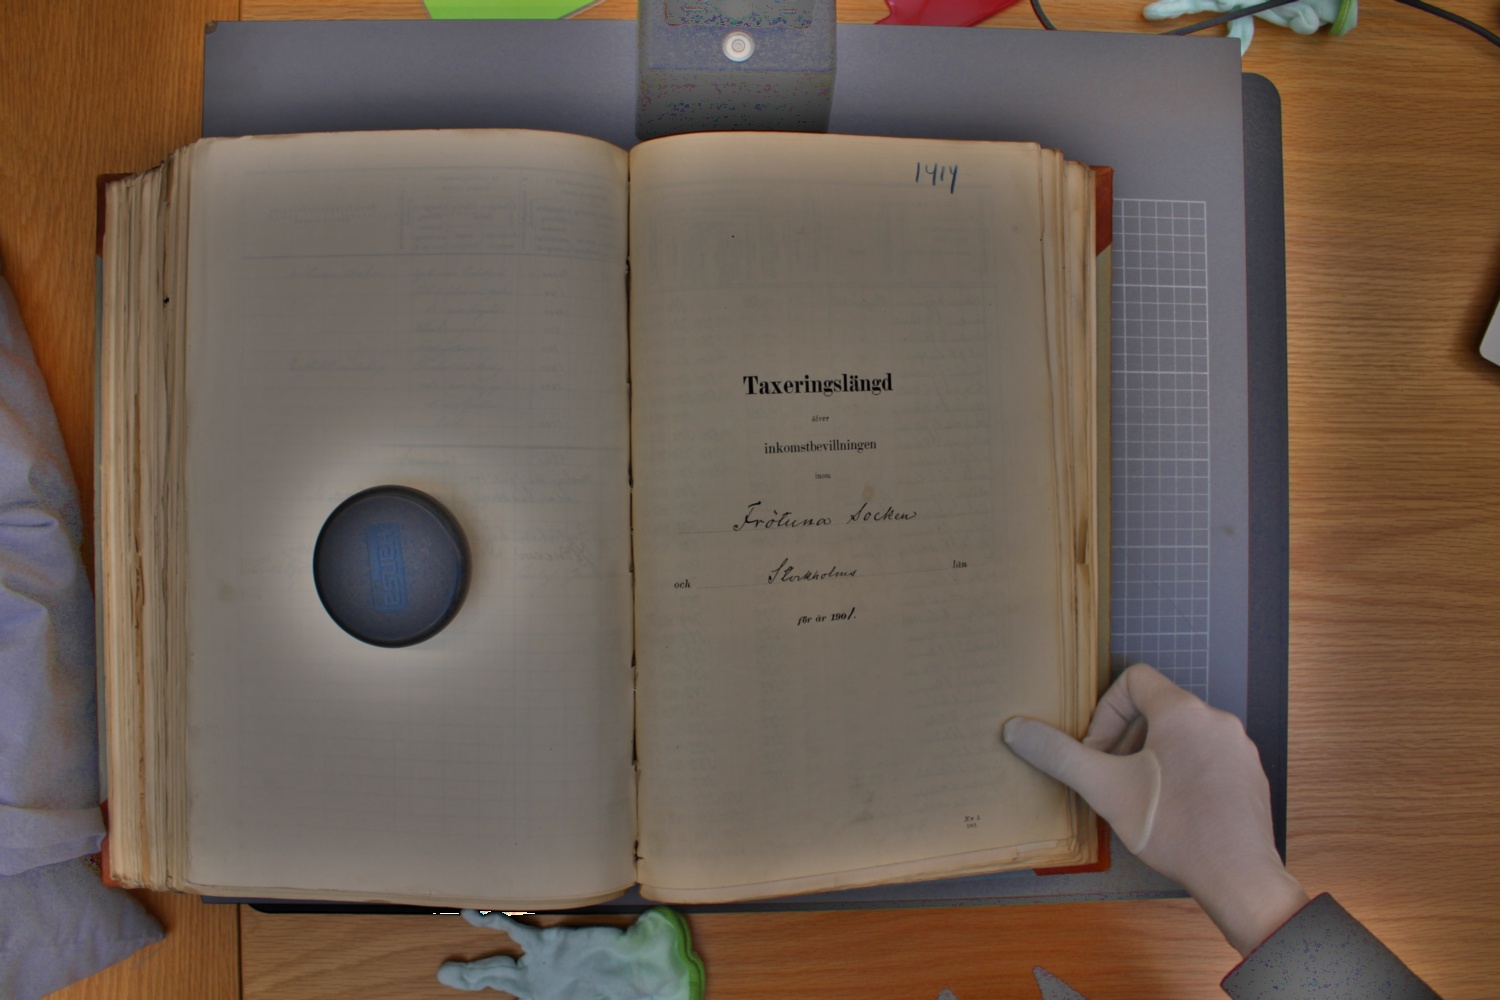 1414
Taxeringslängd
öfver
inkomstbevillningen
inom
Frötuna Socken
och Stockholms län
för år 1901.
No 5.